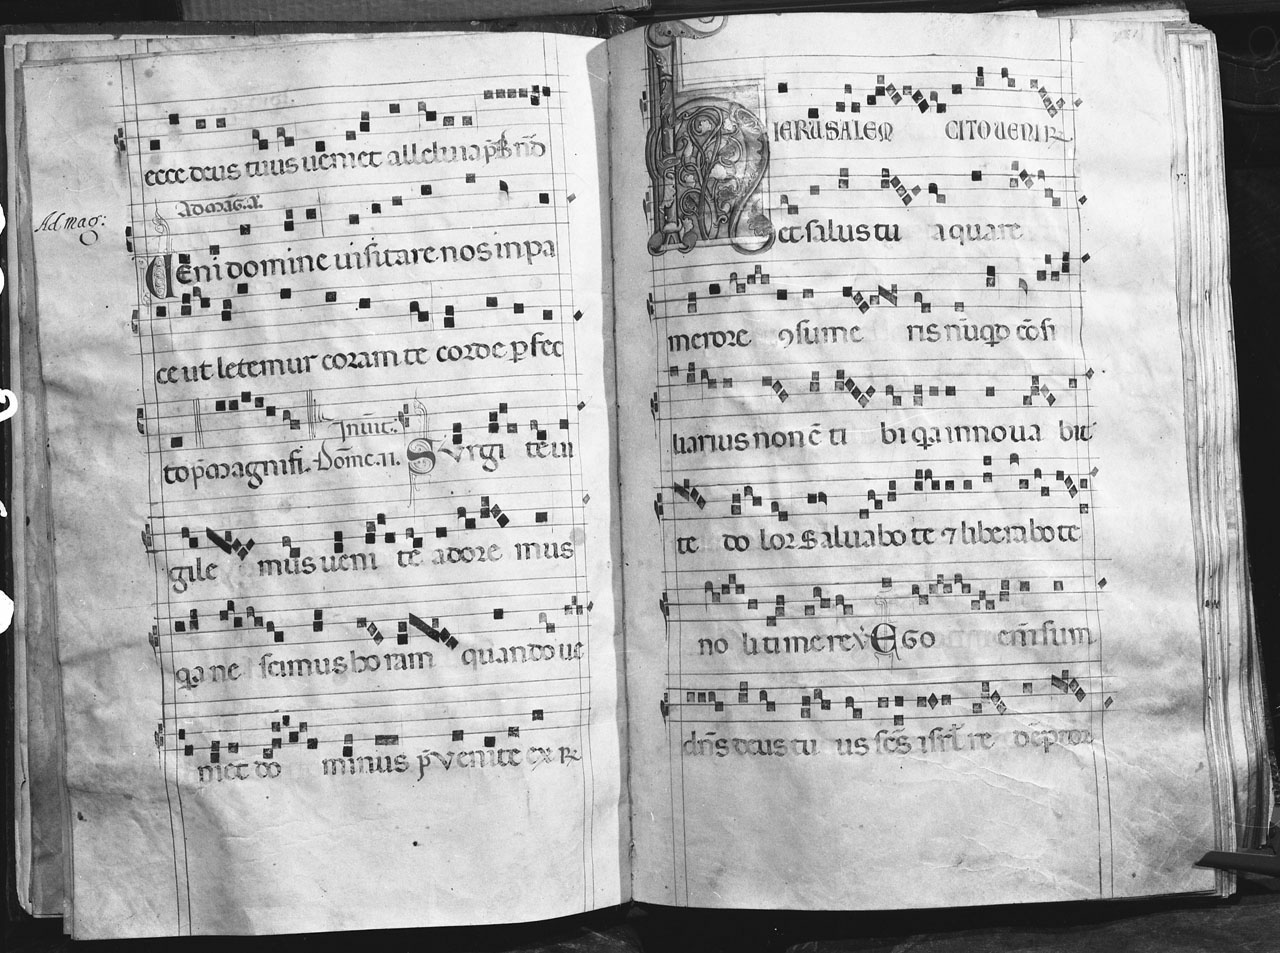 ecce deus tuus ueniet alleluia
Ad mag. a.
Ad mag:
Ueni domine uisitare nos in pa
ce ut letemur coram te corde p fec
to p magnifi. Dom̄c. 11. Inuit. Surgi te ui
gile mus ueni te adore mus
qa ne scimus horam quando ue
niet do minus p̄ venite ex R
IERUSALEM CITO UENI R
et salus tu a quare
merore ɔsume ris nūqd cōsi
liarius non ē ti bi qa innoua bit
te do lor Saluabo te ⁊ liberabo te
no li timere v̄ Ego em̄ sum
dn̄s deus tu us sc̄s isrl̄ re dēptor